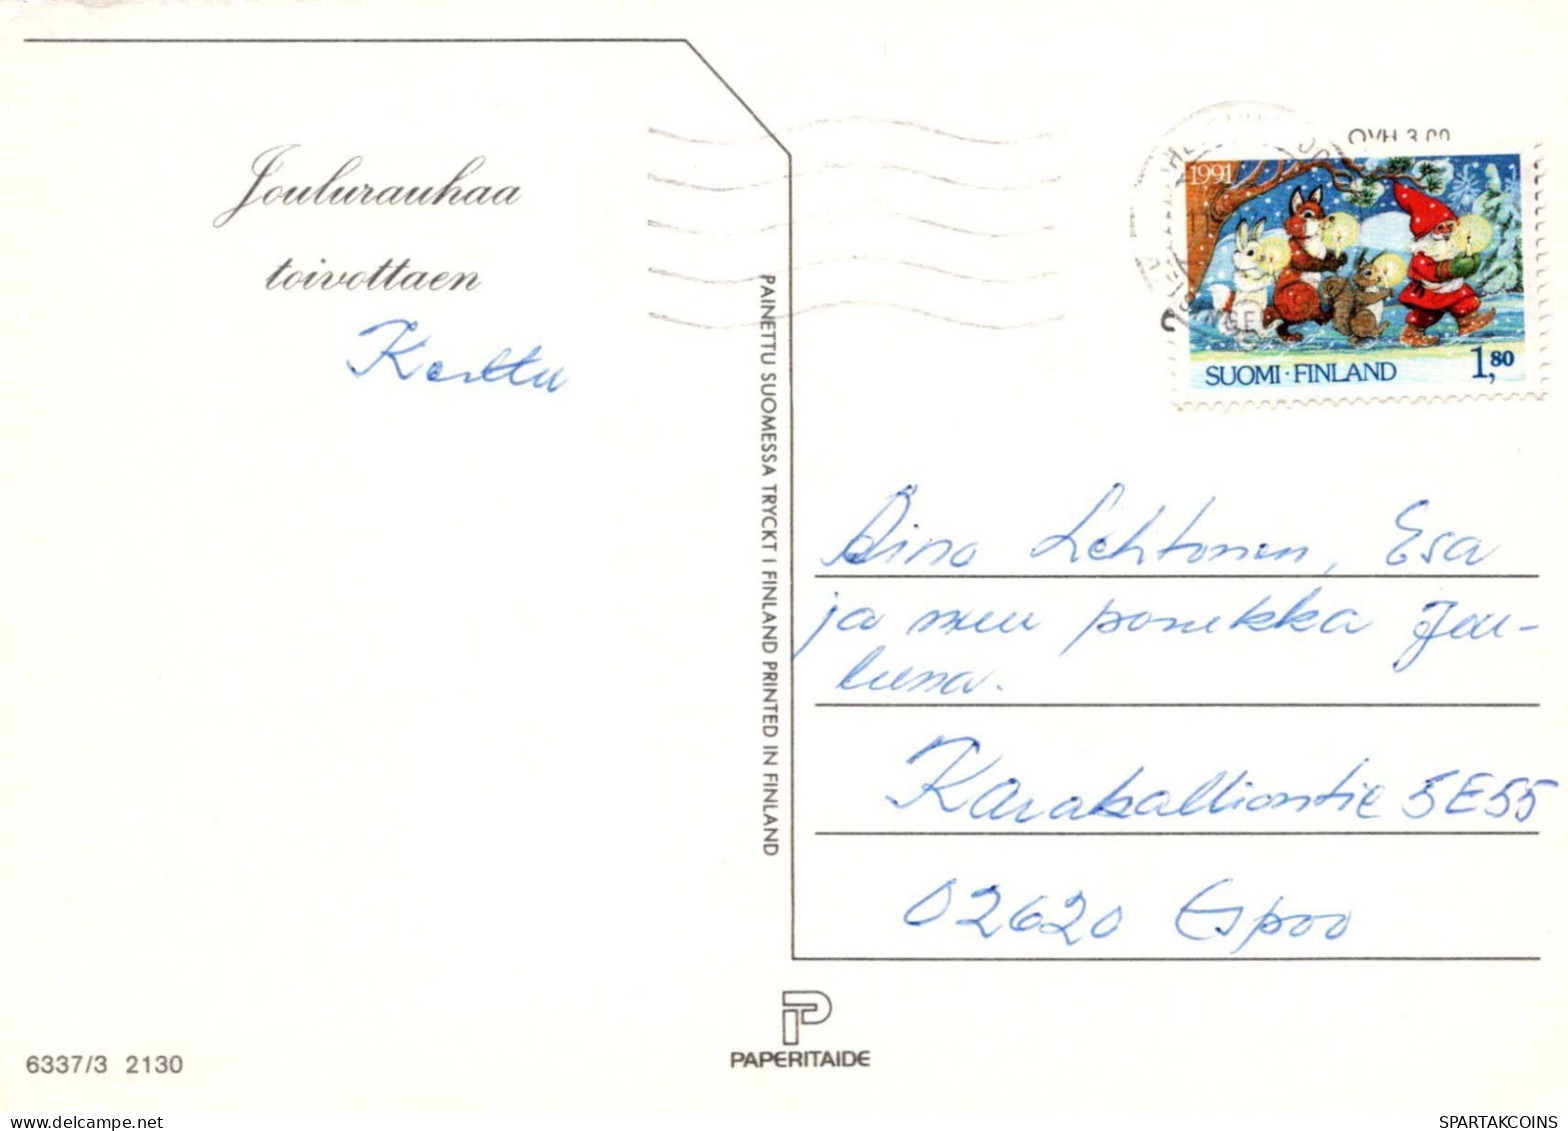 Joulurauhaa
toivottaen
Kerttu
PAINETTU SUOMESSA TRYCKT I FINLAND PRINTED IN FINLAND
1991
SUOMI · FINLAND 1,80
Aino Lehtonen, Esa
ja muu porukka Jou-
luna.
Karakalliontie 5E55
02620 Espoo
PAPERITAIDE
6337/3 2130
SPARTAKCOINS